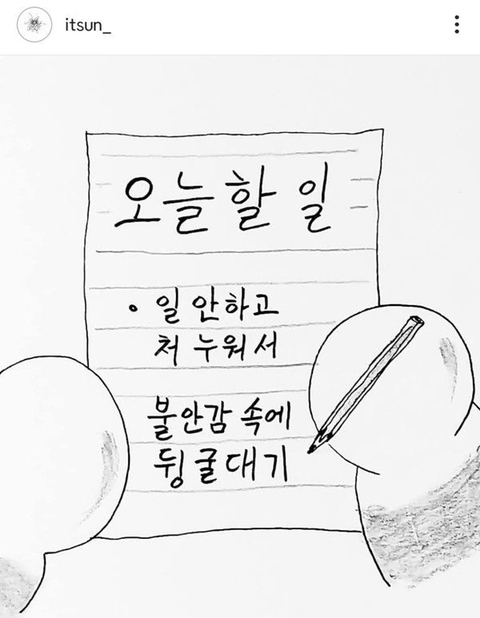 itsun_
오늘 할 일
• 일 안하고
처 누워서
불안감 속에
뒹굴대기